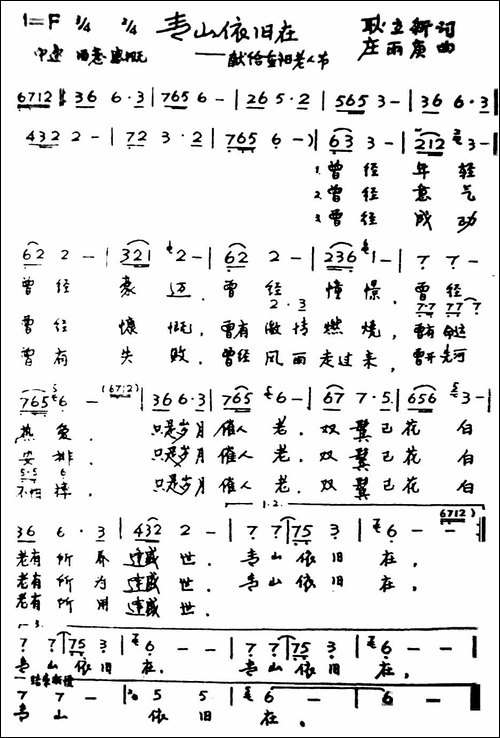 1=F 3/4 2/4 青山依旧在 耿立新词
中速 回忆 感慨 ——献给重阳老人节 庄雨庚曲
6712 | 36 6·3 | 765 6 - | 26 5·2 | 565 3 - | 36 6·3 |
432 2 - | 72 3·2 | 765 6 - ) | 63 3 - | 212 3 - |
1.曾经 年轻
2.曾经 意气
3.曾经 成功
62 2 - | 321 2 - | 62 2 - | 236 1 - | 7 7 - |
曾经 豪迈, 曾经 憧憬, 曾经
2·3 7·7 77 7
曾经 慷慨, 曾有激情燃烧, 曾有命运
曾有 失败, 曾经风雨走过来,
765 6 - (6712) | 36 6·3 | 765 6 - | 67 7·5 | 656 3 - |
热爱, 只是岁月催人老, 双鬓已花白
安排, 只是岁月催人老, 双鬓已花白
5·5 6
只是岁月催人老, 双鬓已花白
1.2. 6712
36 6·3 | 432 2 - | 7 7 | 75 3 | 6 - - :|
老有所养逢盛世, 青山依旧在,
老有所为逢盛世, 青山依旧在,
老有所用逢盛世,
3.
7 7 | 75 3 | 6 - - | 7 7 | 75 3 | 6 - - |
青山依旧在, 青山依旧在,
结束渐慢
7 7 - | 5 5 5 | 6 - - | 6 - - ||
青山 依旧 在。